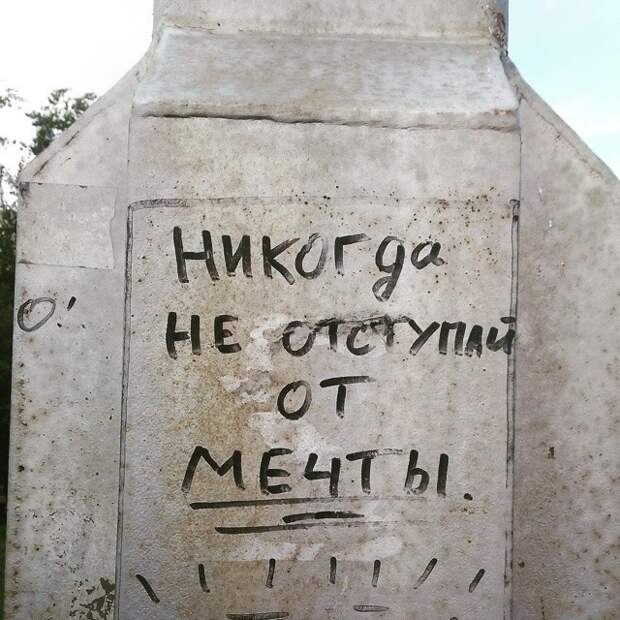 Никогда
О!
не отступай
от
мечты.